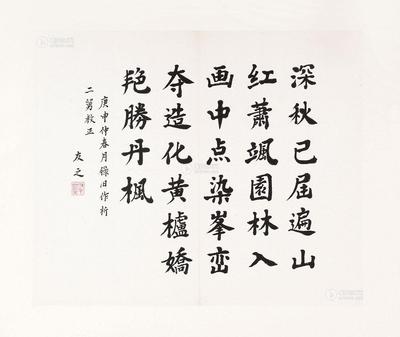 深秋已屆遍山
红蕭颯園林入
画中点染峯峦
夺造化黄櫨嬌
艳勝丹楓
庚申仲春月録旧作祈
二舅教正
友之